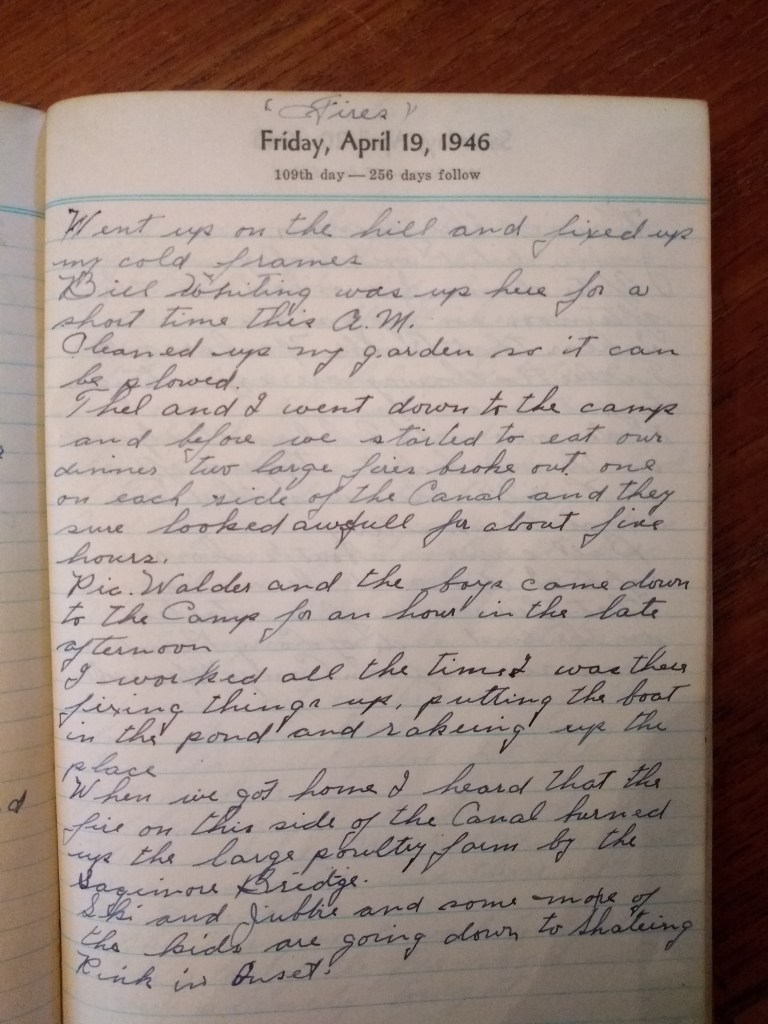 "Fires"
Friday, April 19, 1946
109th day — 256 days follow
Went up on the hill and fixed up
my cold frames
Bill Whiting was up here for a
short time this A.M.
Cleaned up my garden so it can
be plowed.
Thel and I went down to the camp
and before we started to eat our
dinner two large fires broke out one
on each side of the Canal and they
sure looked awfull for about five
hours.
Pic. Walder and the boys came down
to the Camp for an hour in the late
afternoon
I worked all the time I was there
fixing things up, putting the boat
in the pond and rakeing up the
place
When we got home I heard that the
fire on this side of the Canal burned
up the large poultry farm by the
Sagimore Bridge.
Ski and Jubbie and some more of
the kids are going down to Skateing
Rink in Onset.
d